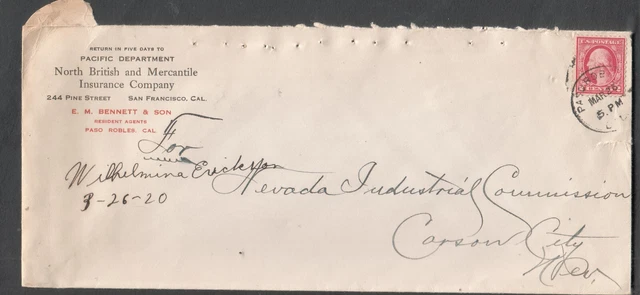 RETURN IN FIVE DAYS TO
PACIFIC DEPARTMENT
North British and Mercantile
Insurance Company
244 PINE STREET SAN FRANCISCO, CAL.
E. M. BENNETT & SON
RESIDENT AGENTS
PASO ROBLES, CAL
U.S. POSTAGE
CENTS
MAR 26
5 PM
For
Wilhelmina Erickson
3-26-20
Nevada Industrial Commission
Carson City
Nev.